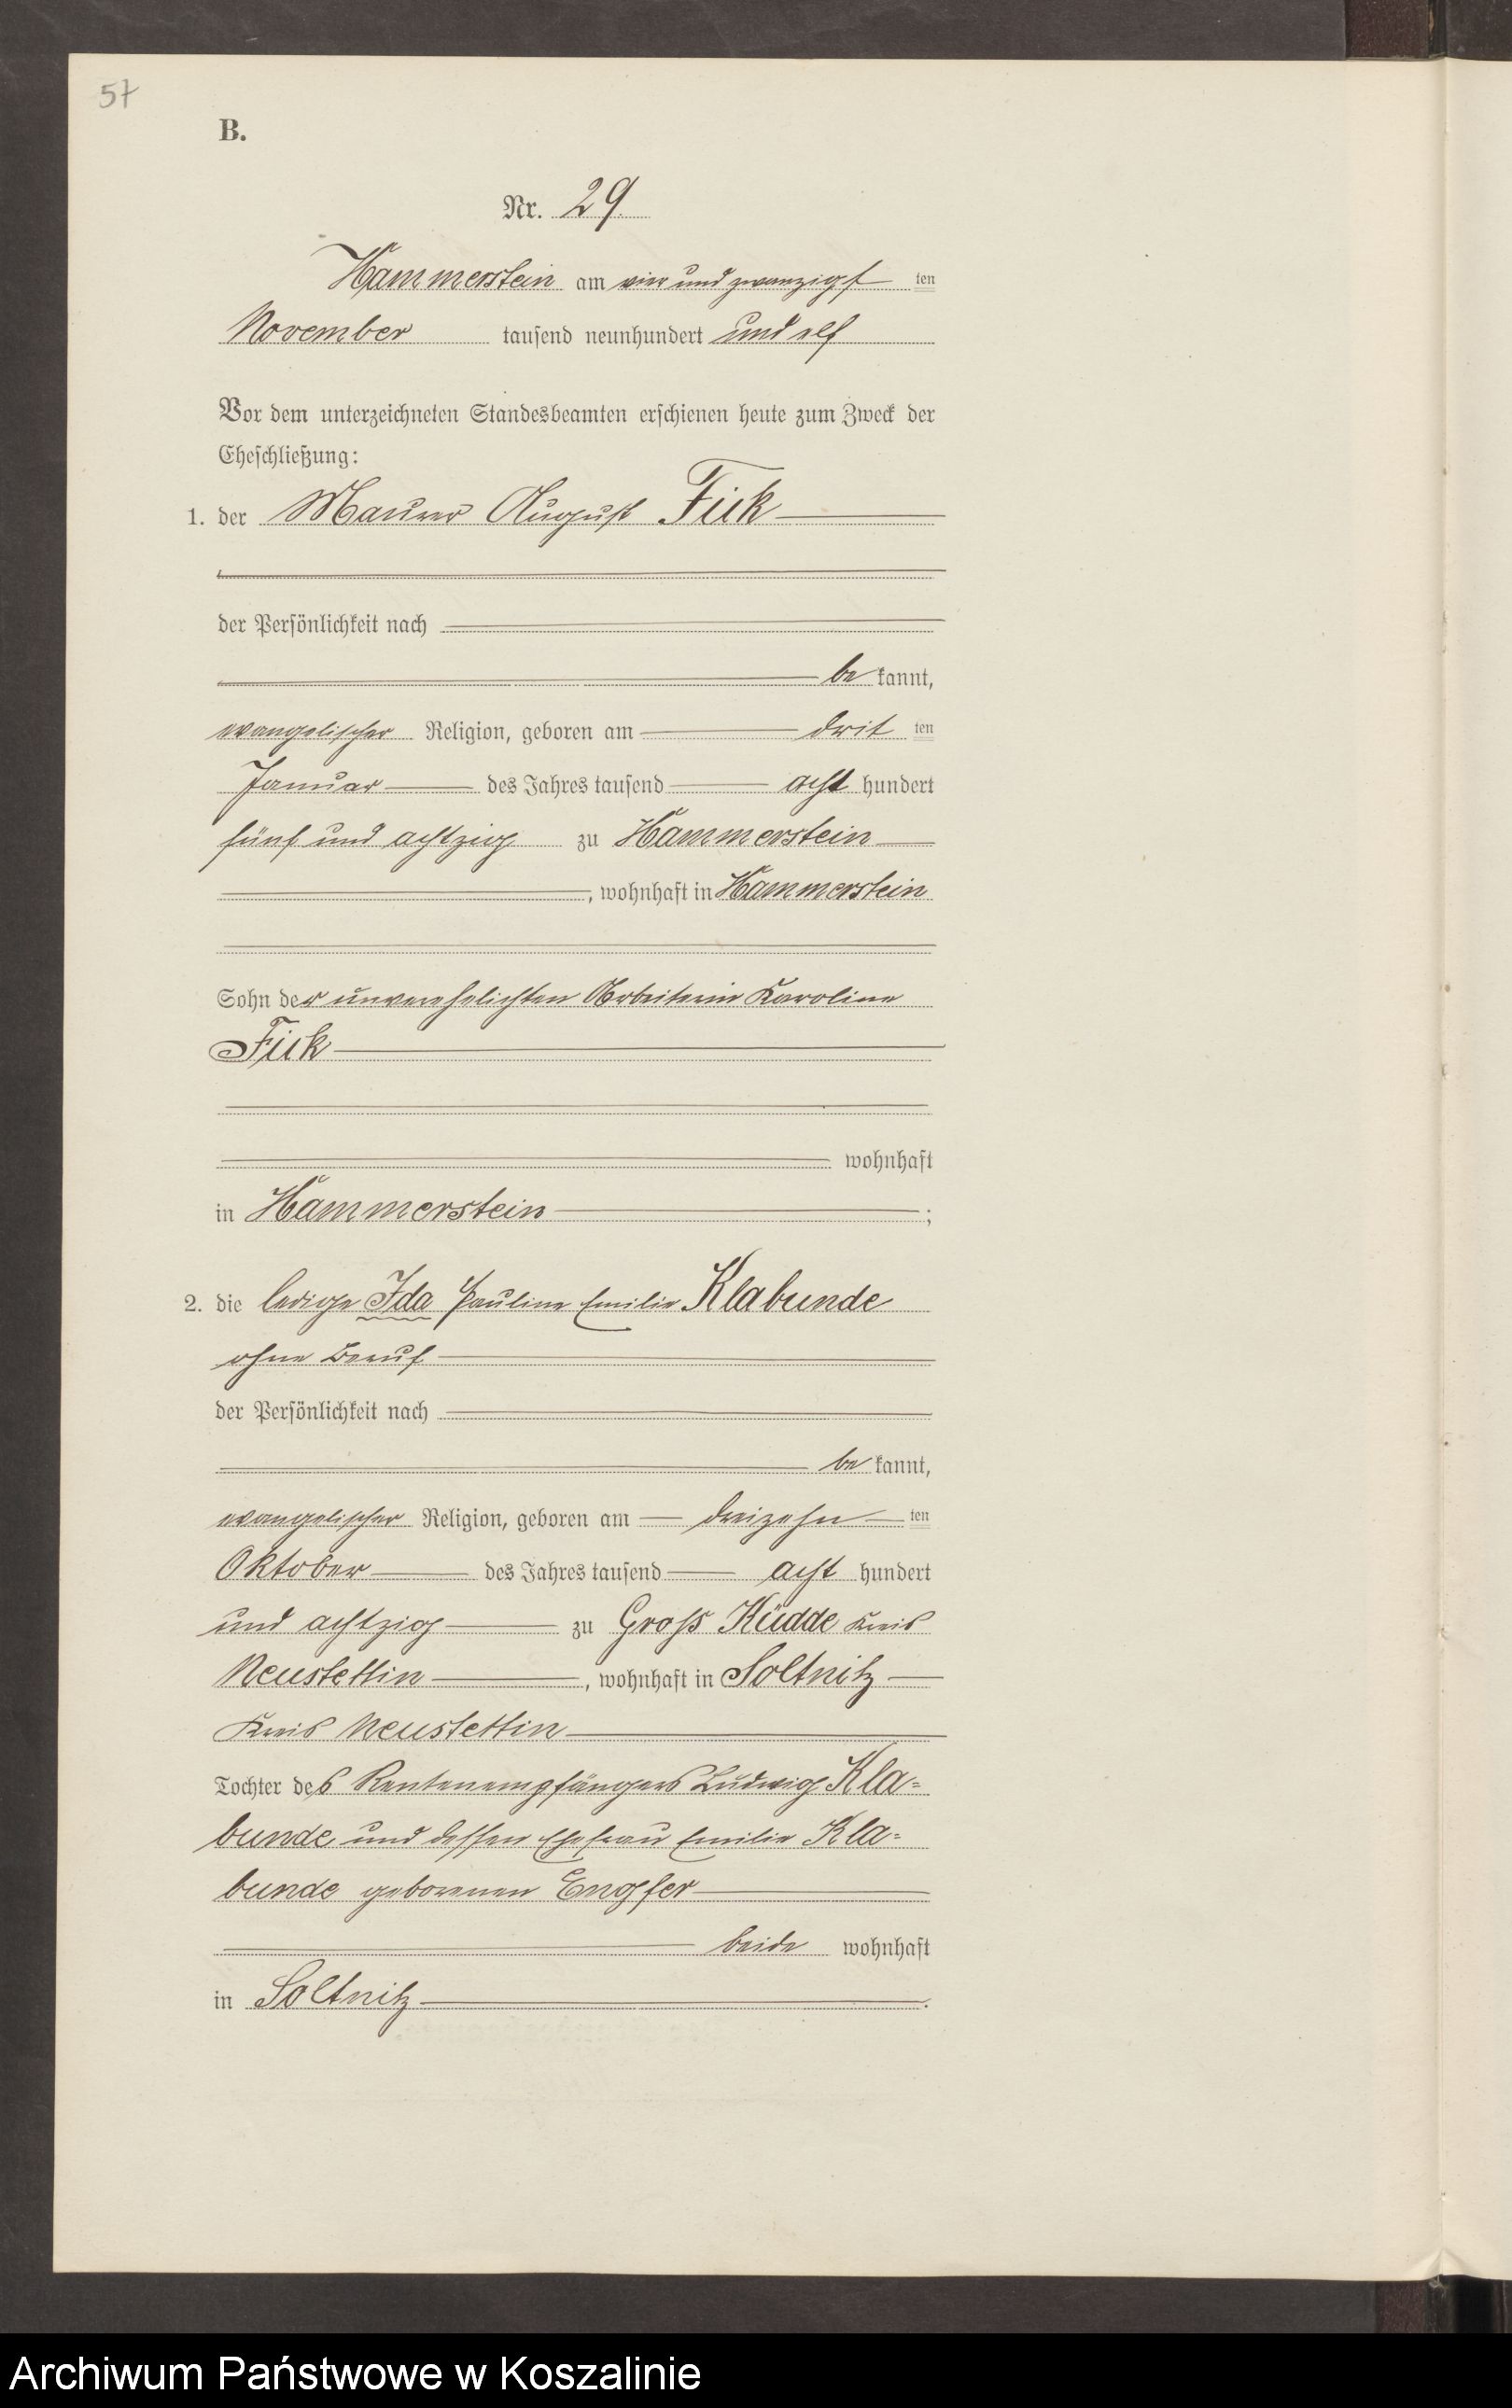 57
B.
Nr. 29.
Hammerstein am vier und zwanzigst ten
November tausend neunhundert und elf
Vor dem unterzeichneten Standesbeamten erschienen heute zum Zweck der
Eheschließung:
1. der Maurer August Fick
der Persönlichkeit nach
be kannt,
evangelischer Religion, geboren am drit ten
Januar des Jahres tausend acht hundert
fünf und achtzig zu Hammerstein
, wohnhaft in Hammerstein
Sohn der unverehelichten Arbeiterin Karoline
Fick
wohnhaft
in Hammerstein ;
2. die ledige Ida Pauline Emilie Klabunde
ohne Beruf
der Persönlichkeit nach
be kannt,
evangelischer Religion, geboren am dreizehn ten
Oktober des Jahres tausend acht hundert
und achtzig zu Gross Küdde Kreis
Neustettin , wohnhaft in Soltnitz
Kreis Neustettin
Tochter des Rentenempfängers Ludwig Kla=
bunde und dessen Ehefrau Emilie Kla=
bunde geborenen Engfer
beide wohnhaft
in Soltnitz .
Archiwum Państwowe w Koszalinie